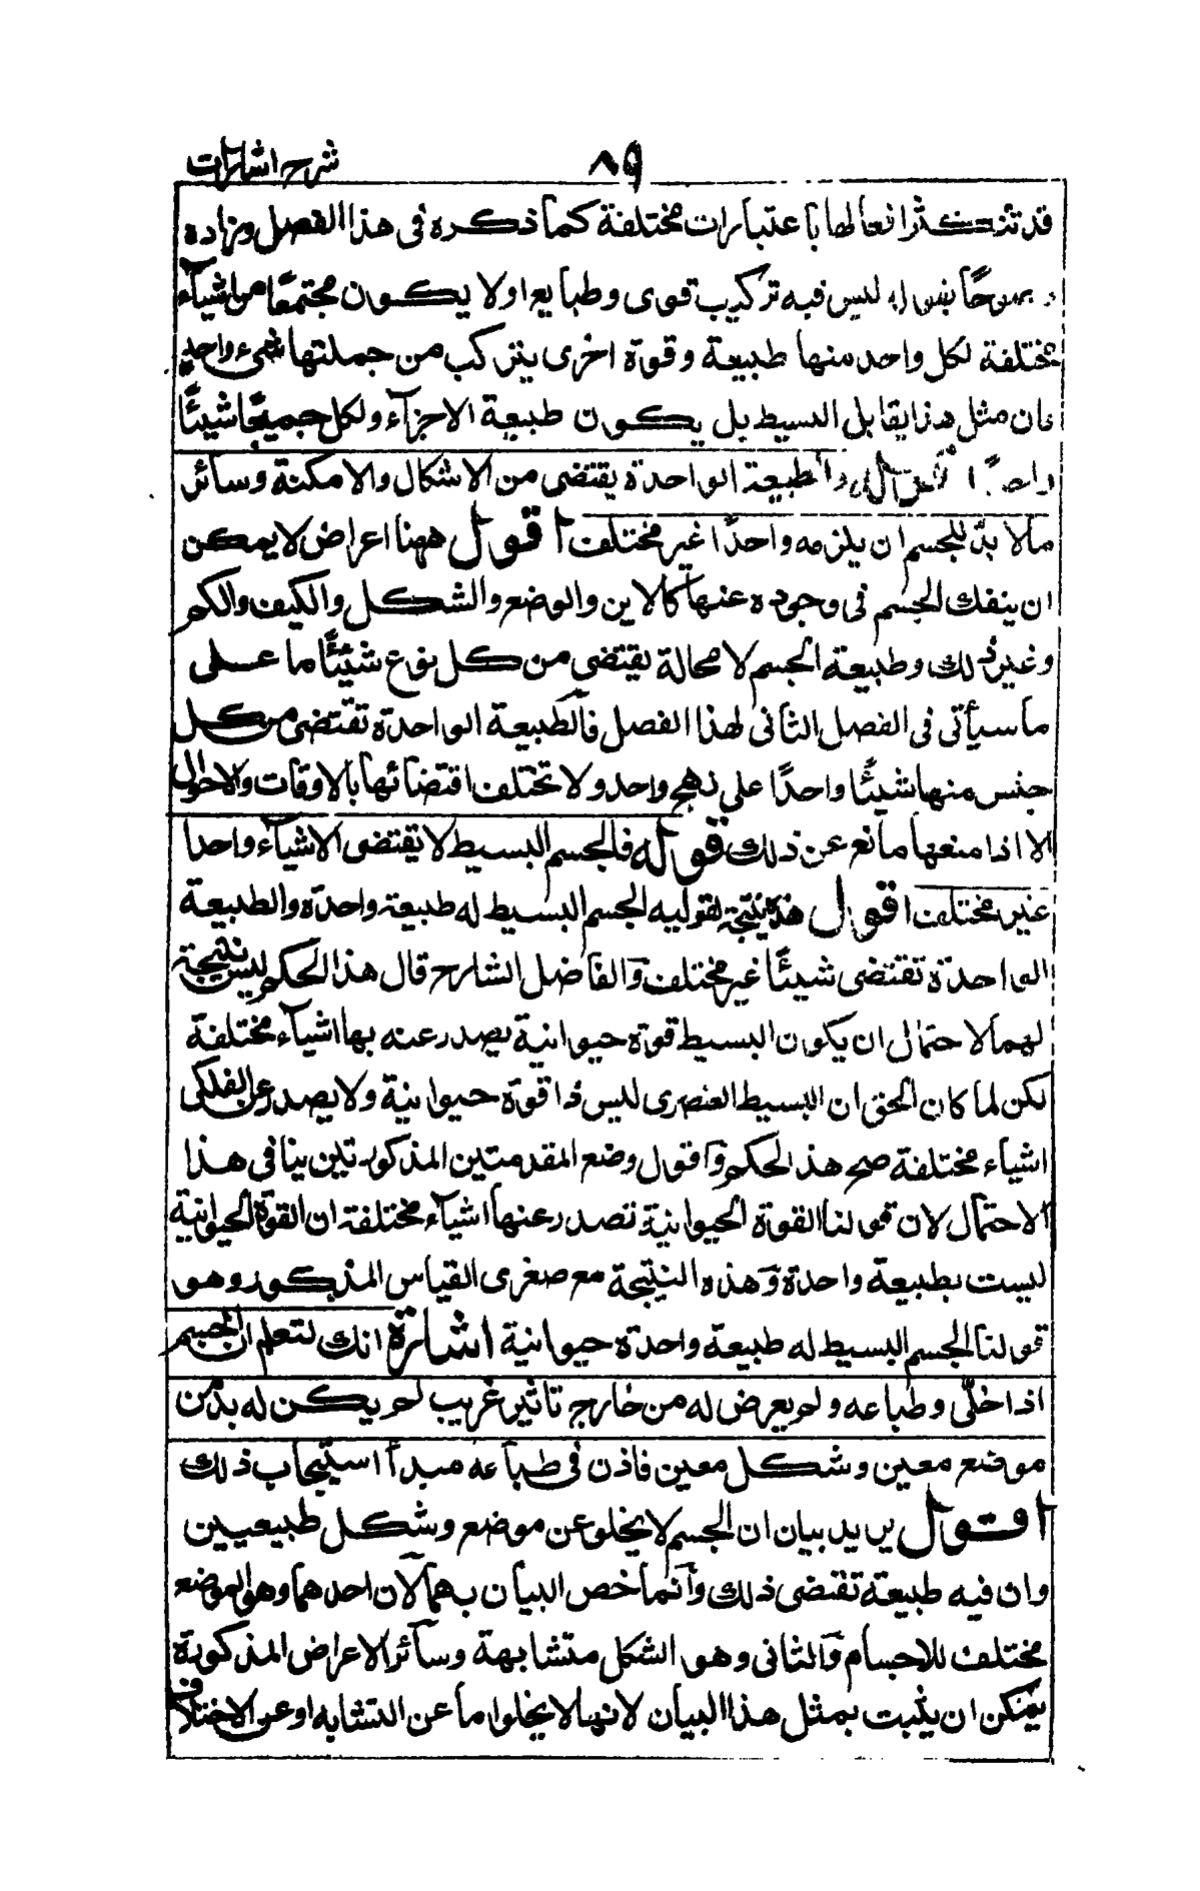 شرح اشارات
٨٩
قد تتكثر افعالها باعتبارات مختلفة كما ذكره فى هذا الفصل وزاده
بقوله ليس فيه تركيب قوى وطبايع اى لا يكون مجتمعًا من اشيآء
مختلفة لكل واحد منها طبيعة وقوة اخرى يتركب من جملتها شىء واحد
فان مثل هذا يقابل البسيط بل يكون طبيعة الاجزآء ولكل جميعًا شيئًا
واحدًا قوله والطبيعة الواحدة يقتضى من الاشكال والامكنة وسائر
مالا بدّ للجسم ان يلزمه واحدًا غير مختلف اقول ههنا اعراض لا يمكن
ان ينفك الجسم فى وجوده عنها كالاين والوضع والشكل والكيف والكم
وغير ذلك وطبيعة الجسم لا محالة يقتضى من كل نوع شيئًا ما على
ما سيأتى فى الفصل الثانى لهذا الفصل فالطبيعة الواحدة تقتضى من كل
جنس منها شيئًا واحدًا على نهج واحد ولا تختلف اقتضائها بالاوقات والاحوال
الا اذا منعها مانع عن ذلك قوله فالجسم البسيط لا يقتضى الا شيآء واحدا
غير مختلف اقول هذه نتيجة لقوليه الجسم البسيط له طبيعة واحدة والطبيعة
الواحدة تقتضى شيئًا غير مختلف والفاضل الشارح قال هذا الحكم ليس نتيجة
لهما لاحتمال ان يكون البسيط قوة حيوانية يصدر عنه بها اشيآء مختلفة
لكن لما كان الحق ان البسيط العنصرى ليس ذا قوة حيوانية ولا يصدر عن الفلكى
اشياء مختلفة صح هذا الحكم واقول وضع المقدمتين المذكورتين ينافى هذا
الاحتمال لان قولنا القوة الحيوانية تصدر عنها اشيآء مختلفة ان القوة الحيوانية
ليست بطبيعة واحدة وهذه النتيجة مع صغرى القياس المذكور وهو
قولنا الجسم البسيط له طبيعة واحدة حيوانية اشارة انك لتعلم ان الجسم
اذا خلّى وطباعه ولم يعرض له من خارج تاثير غريب لم يكن له بدّ من
موضع معين وشكل معين فاذن فى طباعه مبدأ استيجاب ذلك
اقول يريد بيان ان الجسم لا يخلو عن موضع وشكل طبيعيين
وان فيه طبيعة تقتضى ذلك وانما خص البيان بهما لان احدهما وهو الموضع
مختلف للاجسام والثانى وهو الشكل متشابهة وسآئر الاعراض المذكورة
يمكن ان يثبت بمثل هذا البيان لانها لا يخلو اما عن التشابه او عن الاختلاف